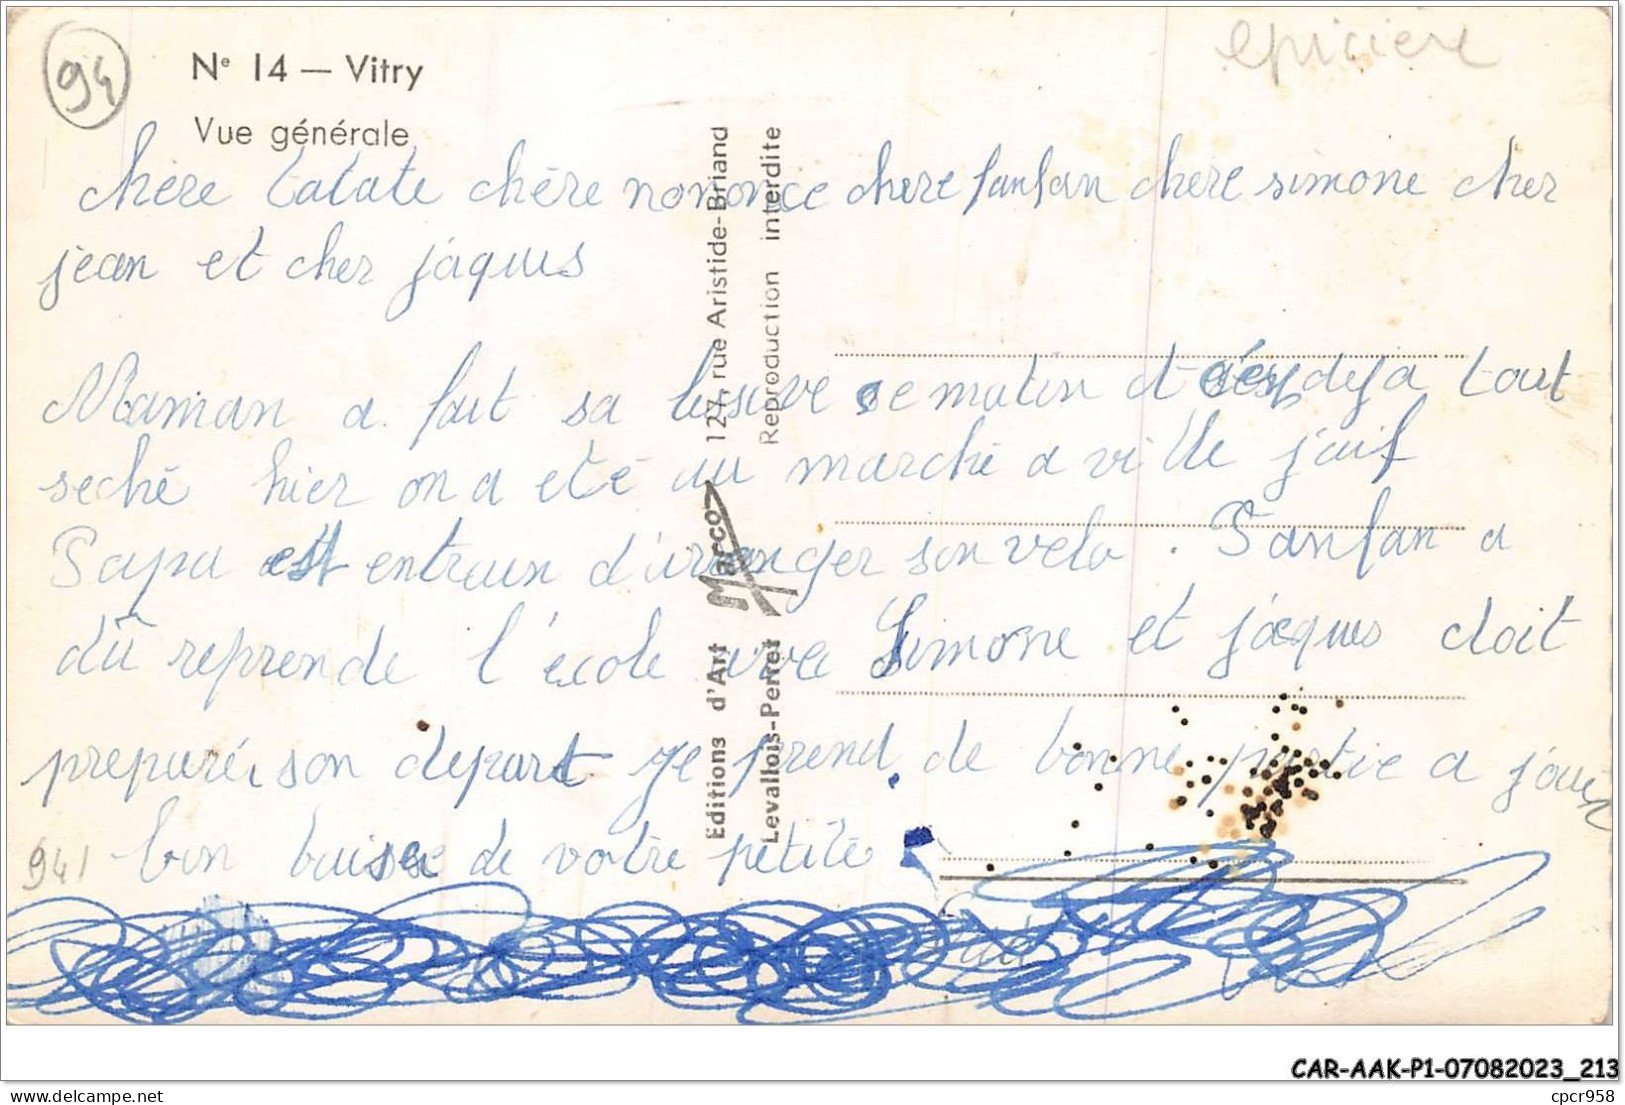 94
N° 14 — Vitry
epiciere
Vue générale
chère tatate chère nononce chere fanfan chere simone cher
jean et cher jaques
Maman a fait sa lesive ce matin et déja tout
seché hier on a eté au marché a ville juif
Papa est entrain d'arranger son velo. Fanfan a
dû reprende l'école avec Simone et jaques doit
preparé son depart je prend de bonne partie a jouer
bon baiser de votre petite
941
Editions d'Art Marco 127, rue Aristide-Briand
Levallois-Perret Reproduction interdite
CAR-AAK-P1-07082023_213
delcampe.net
cpcr958